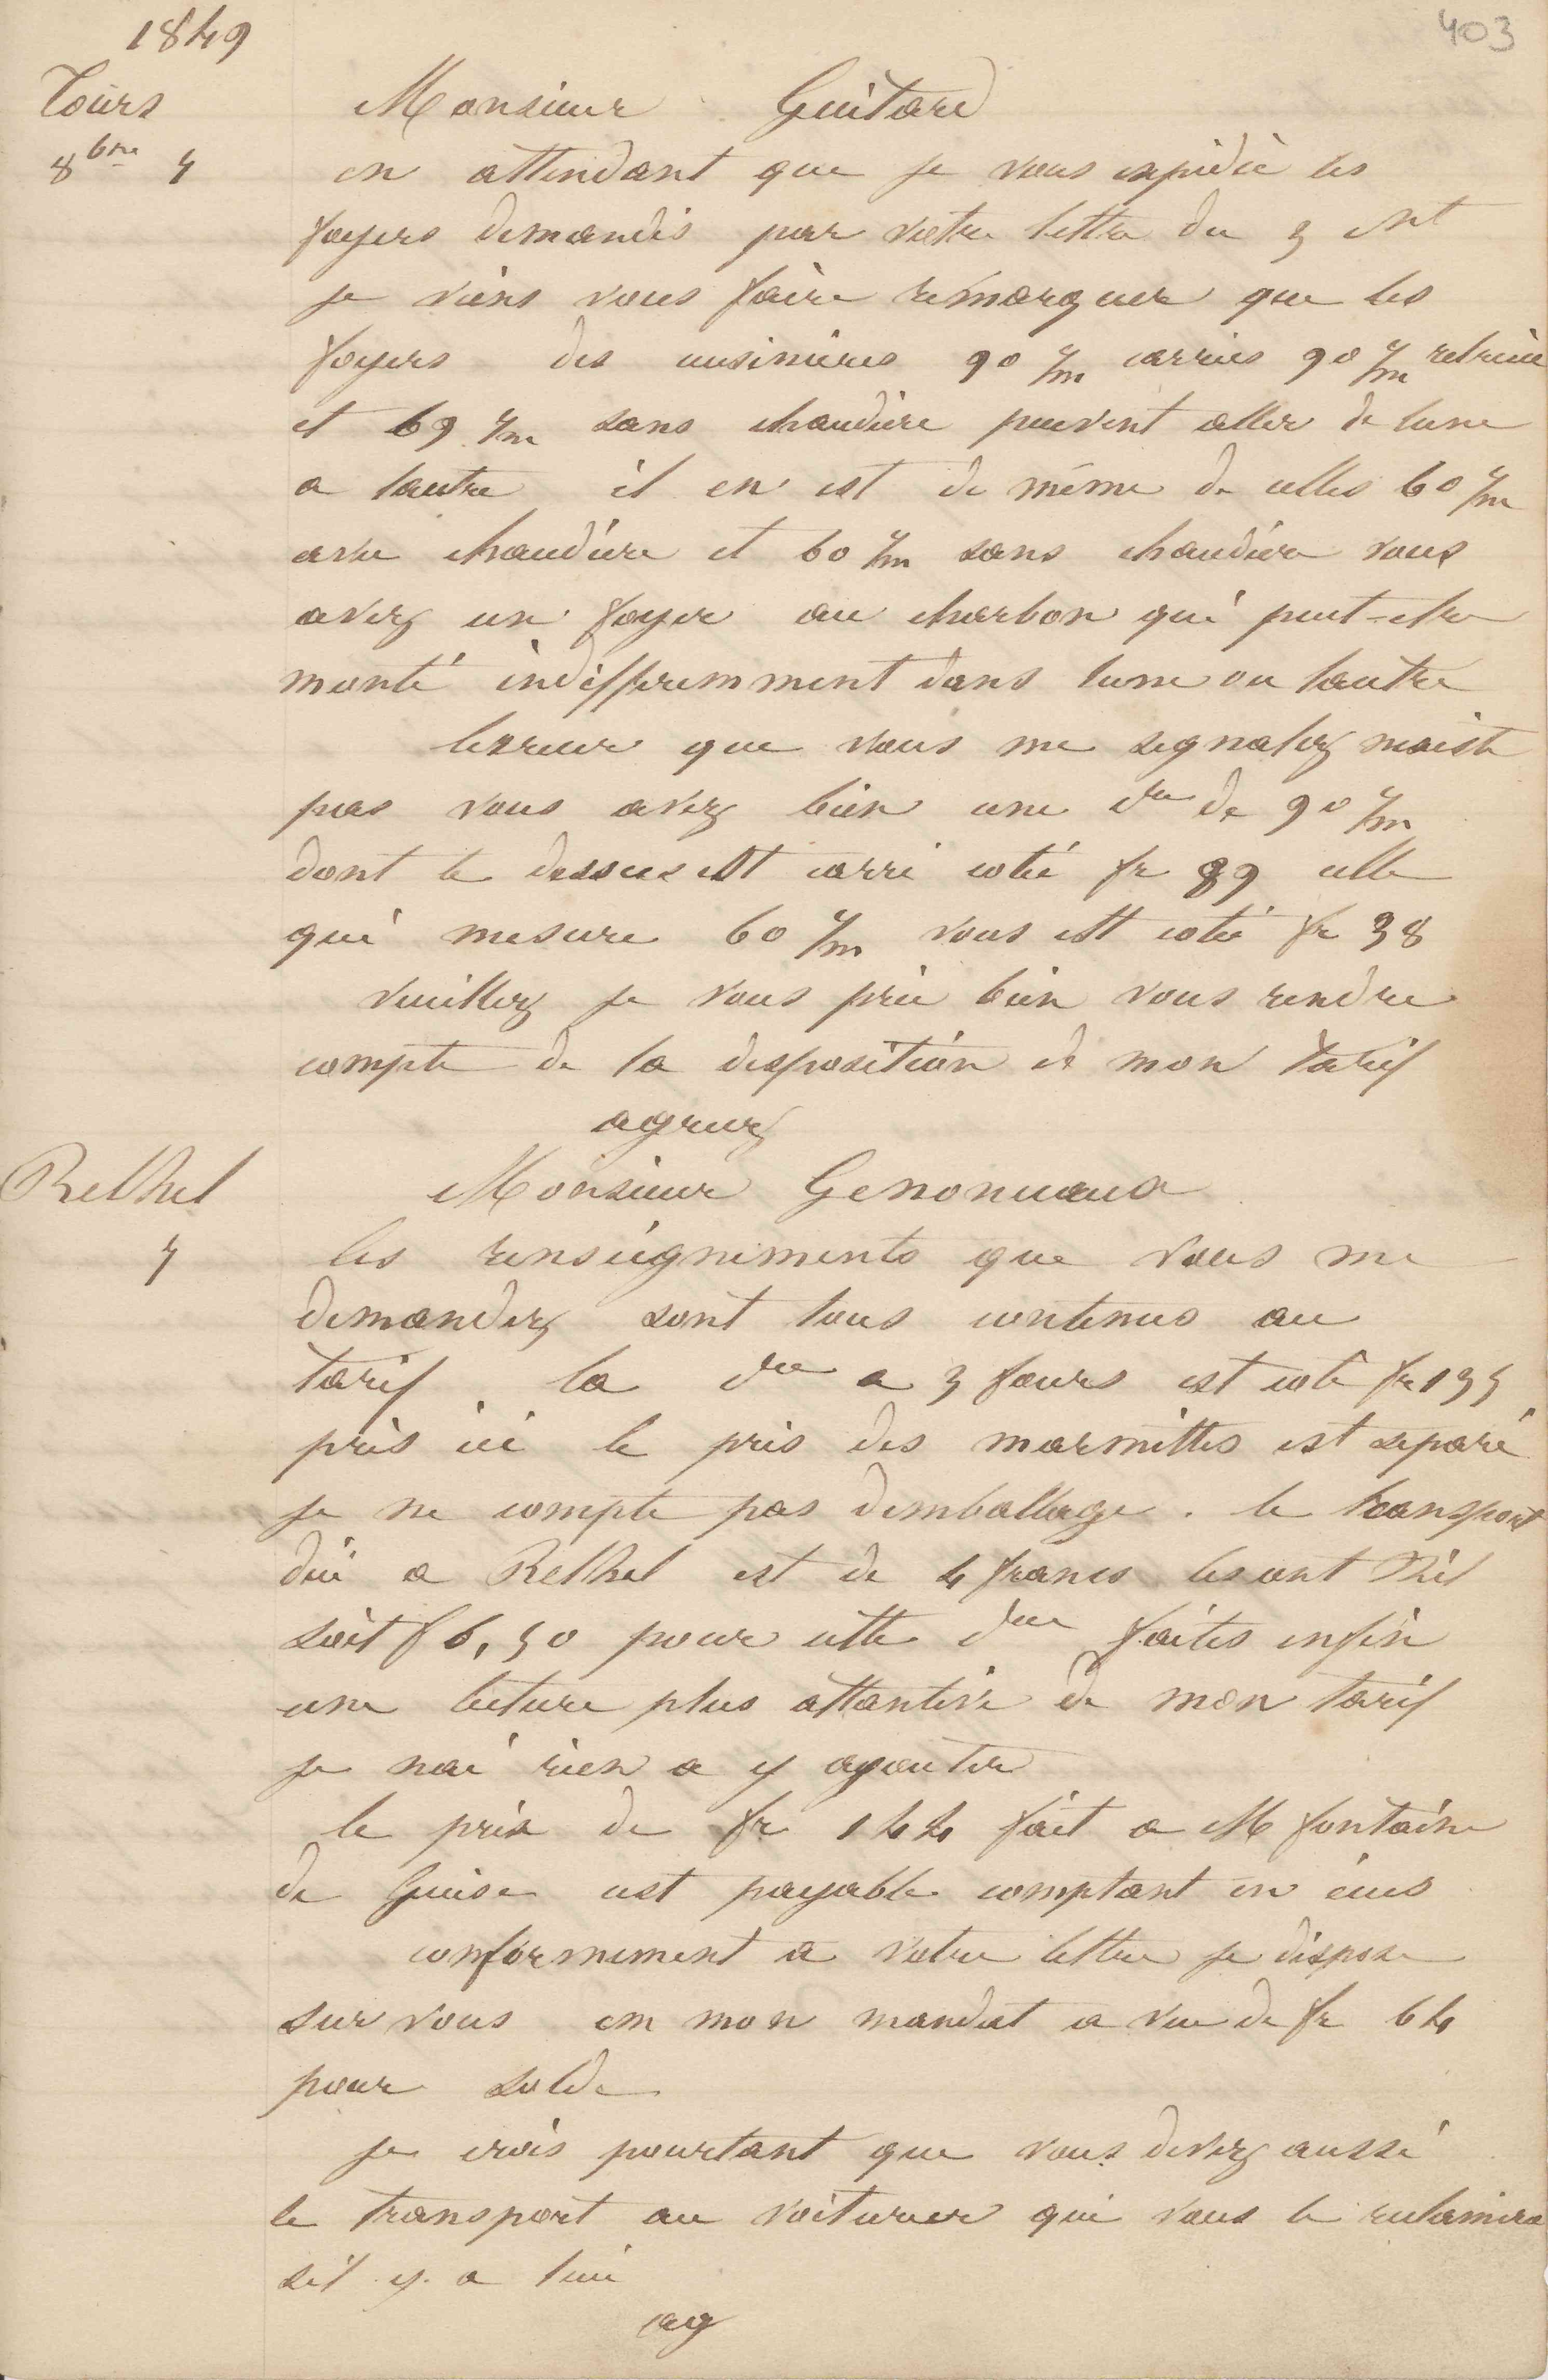 1849
403
Tours
8bre 5
Monsieur Guitard
en attendant que je vous expédie les
foyers demandés par votre lettre du 3 ct
je viens vous faire remarquer que les
foyers des cuisinières 90 c/m carrées 90 c/m retrécie
et 69 c/m sans chaudière peuvent aller de lune
a lautre il en est de même de celles 60 c/m
avec chaudière et 60 c/m sans chaudière vous
avez un foyer au charbon qui peut-etre
monté indifferemment dans lune ou lautre
lerreur que vous me signalez nexiste
pas vous avez bien une dre de 90 c/m
dont le dessus est carré coté fr 89 celle
qui mesure 60 c/m vous est coté fr 38
veuillez je vous prie bien vous rendre
compte de la disposition de mon tarif
agreez
Rethel
5
Monsieur Genonceaux
les renseignements que vous me
demandez sont tous contenus au
tarif. la dre a 3 fours est coté fr 135
pris ici le prix des marmittes est separé
je ne compte pas demballage. le transport
dici a Rethel est de 4 francs les cent Kil
soit f 6,50 pour cette dre faites enfin
une lecture plus attantive de mon tarif
je nai rien a y ajouter
le prix de fr 144 fait a M fontaine
de Guise est payable comptant en écus
conformement a votre lettre je dispose
sur vous en mon mandat a vue de fr 64
pour solde
je crois pourtant que vous devez aussi
le transport au voiturier qui vous le reclamera
sil y a lieu
ag